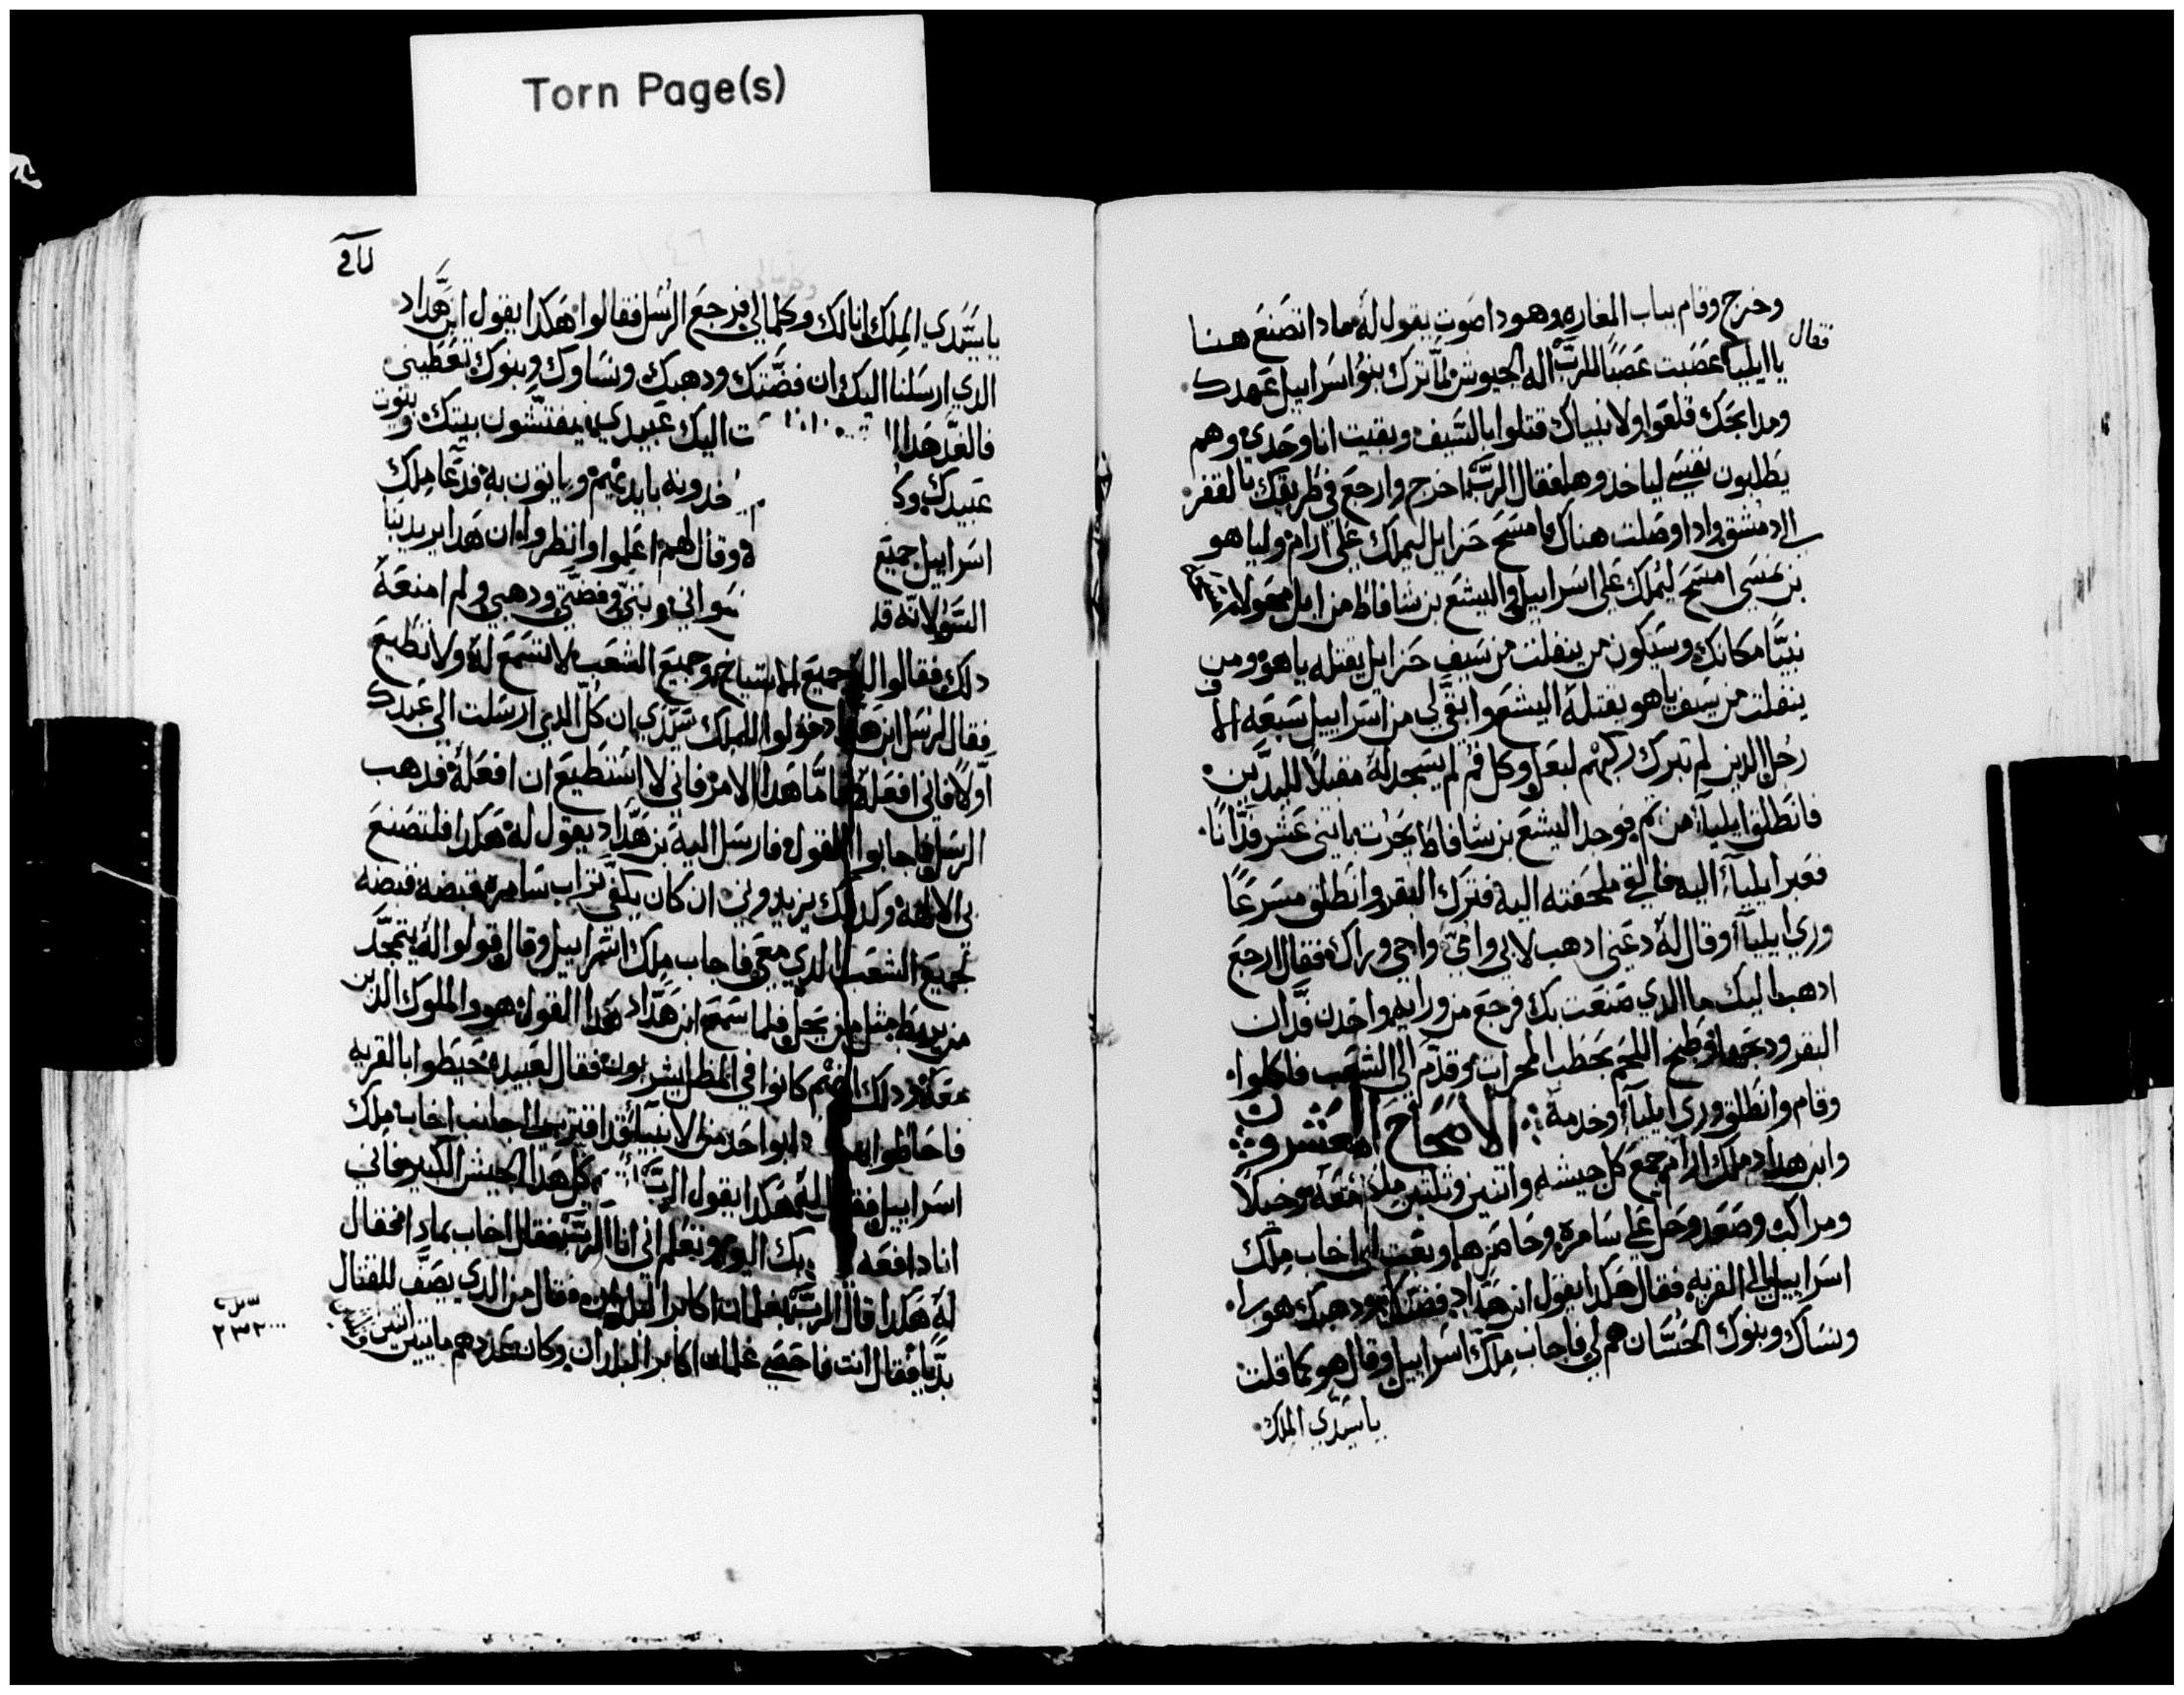 Torn Page(s)
وخرج وقام بباب المغاره وهودا صوت يقول له مادا تصنع هنا
فقال
يا ايليا عصبت عصبا للرب اله الجيوش لما ترك بنوا اسراييل عهدك
ومدابحك قلعوا ولانبياك قتلوا بالسيف وبقيت انا وحدي وهم
يطلبون نفسي لياخدوها فقال الرب اخرج وارجع في طريقك بالقفر
الي دمشق وادا وصلت هناك فامسح حزايل ليملك علي ارام ولياهو
بن نمسي امسح ليملك علي اسراييل واليشع بن شافاط من ابل محولا
نبيا مكانك وسيكون من ينفلت من سيف حزايل يقتله ياهو ومن
ينفلت من سيف ياهو يقتله اليشع وابقي لي من اسراييل سبعه الاف
رجل الدين لم تبرك ركبهم لبعل وكل فم لم يسجد له مقبلا لليدين
فانطلق ايليا من تم فوجد اليشع بن شافاط يحرت باتني عشر فدانا
فعبر ايليا اليه فالقي ملحفته اليه فترك البقر وانطلق مسرعا
وري ايليا وقال له دعني ادهب لابي وامي واجي وراك فقال ارجع
ادهب اليك ما الدي صنعت بك فرجع من ورايه واخد فدان
البقر ودبحها وطبخ اللحم بحطب المحراب وقدم الي الشعب فاكلوا
وقام وانطلق وري ايليا وخدمه الاصحاح العشرون
وابن هداد ملك ارام جمع كل جيشه واتنين وتلتين ملك معه وخيلا
ومراكب وصعد وحل علي سامره وحاصرها وبعت الي اخاب ملك
اسراييل الي القريه فقال هكدا يقول ابن هداد فضتك ودهبك هو لي
ونساك وبنوك الحسان هم لي فاجاب ملك اسراييل وقال هو كما قلت
ياسيدي الملك
ياسيدي الملك انا لك وكلما لي فرجع الرسل فقالوا هكدا يقول ابن هداد
الدي ارسلنا اليك ان فضتك ودهبك ونساوك وبنوك تعطيني
فالغد هدا ت اليك عبيدي فيفتشون بيتك وبيوت
عبيدك وك خدونه بايديهم وياتون به فدعا ملك
اسراييل جميع ه وقال لهم اعلموا وانظروا ان هدا يريد بنا
السو لانه قد سواني وبني وفضتي ودهبي ولم امنعه
دلك فقالوا له جميع المشايخ وجميع الشعب لا تسمع له ولا تطيع
فقال لرسل ابن هداد قولوا للملك سيدي ان كل الدي ارسلت الي عبدك
اولا فاني افعله فاما هدا الامر فاني لا استطيع ان افعله فدهب
الرسل فاجابوا القول فارسل اليه بن هداد يقول له هكدا فلتصنع
لي الالهه وكدلك يزيدوني ان كان يكفي تراب سامره قبضه قبضه
لجميع الشعب الدي معي فاجاب ملك اسراييل وقال قولوا له لا يتمجد
من يربط مثل من يحل فلما سمع ابن هداد هدا القول هو والملوك الدين
معه ودلك انهم كانوا في المظل يشربون فقال لعبيده حيطوا بالقريه
فاحاطوا بها وادا بواحد من الانبيا قد اقترب الي جانب اخاب ملك
اسراييل فقال له هكدا يقول الرب كل هدا الجيش الكبير فاني
انا دافعه بيدك اليوم وتعلم اني انا الرب فقال اخاب بمادا فقال
له هكدا قال الرب بغلمان اكابر البلدان فقال من الدي يصف للقتال
بديا فقال انت فاحصي غلمان اكابر البلدان وكان عددهم مايتين اتنين
٢٣٢